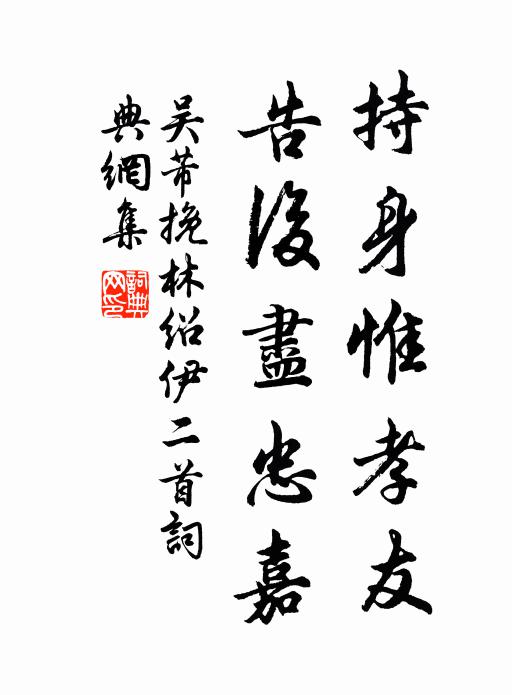 持身惟孝友
告後盡忠嘉
吴芾挽林紹伊二首詞
典網集
詞典網印